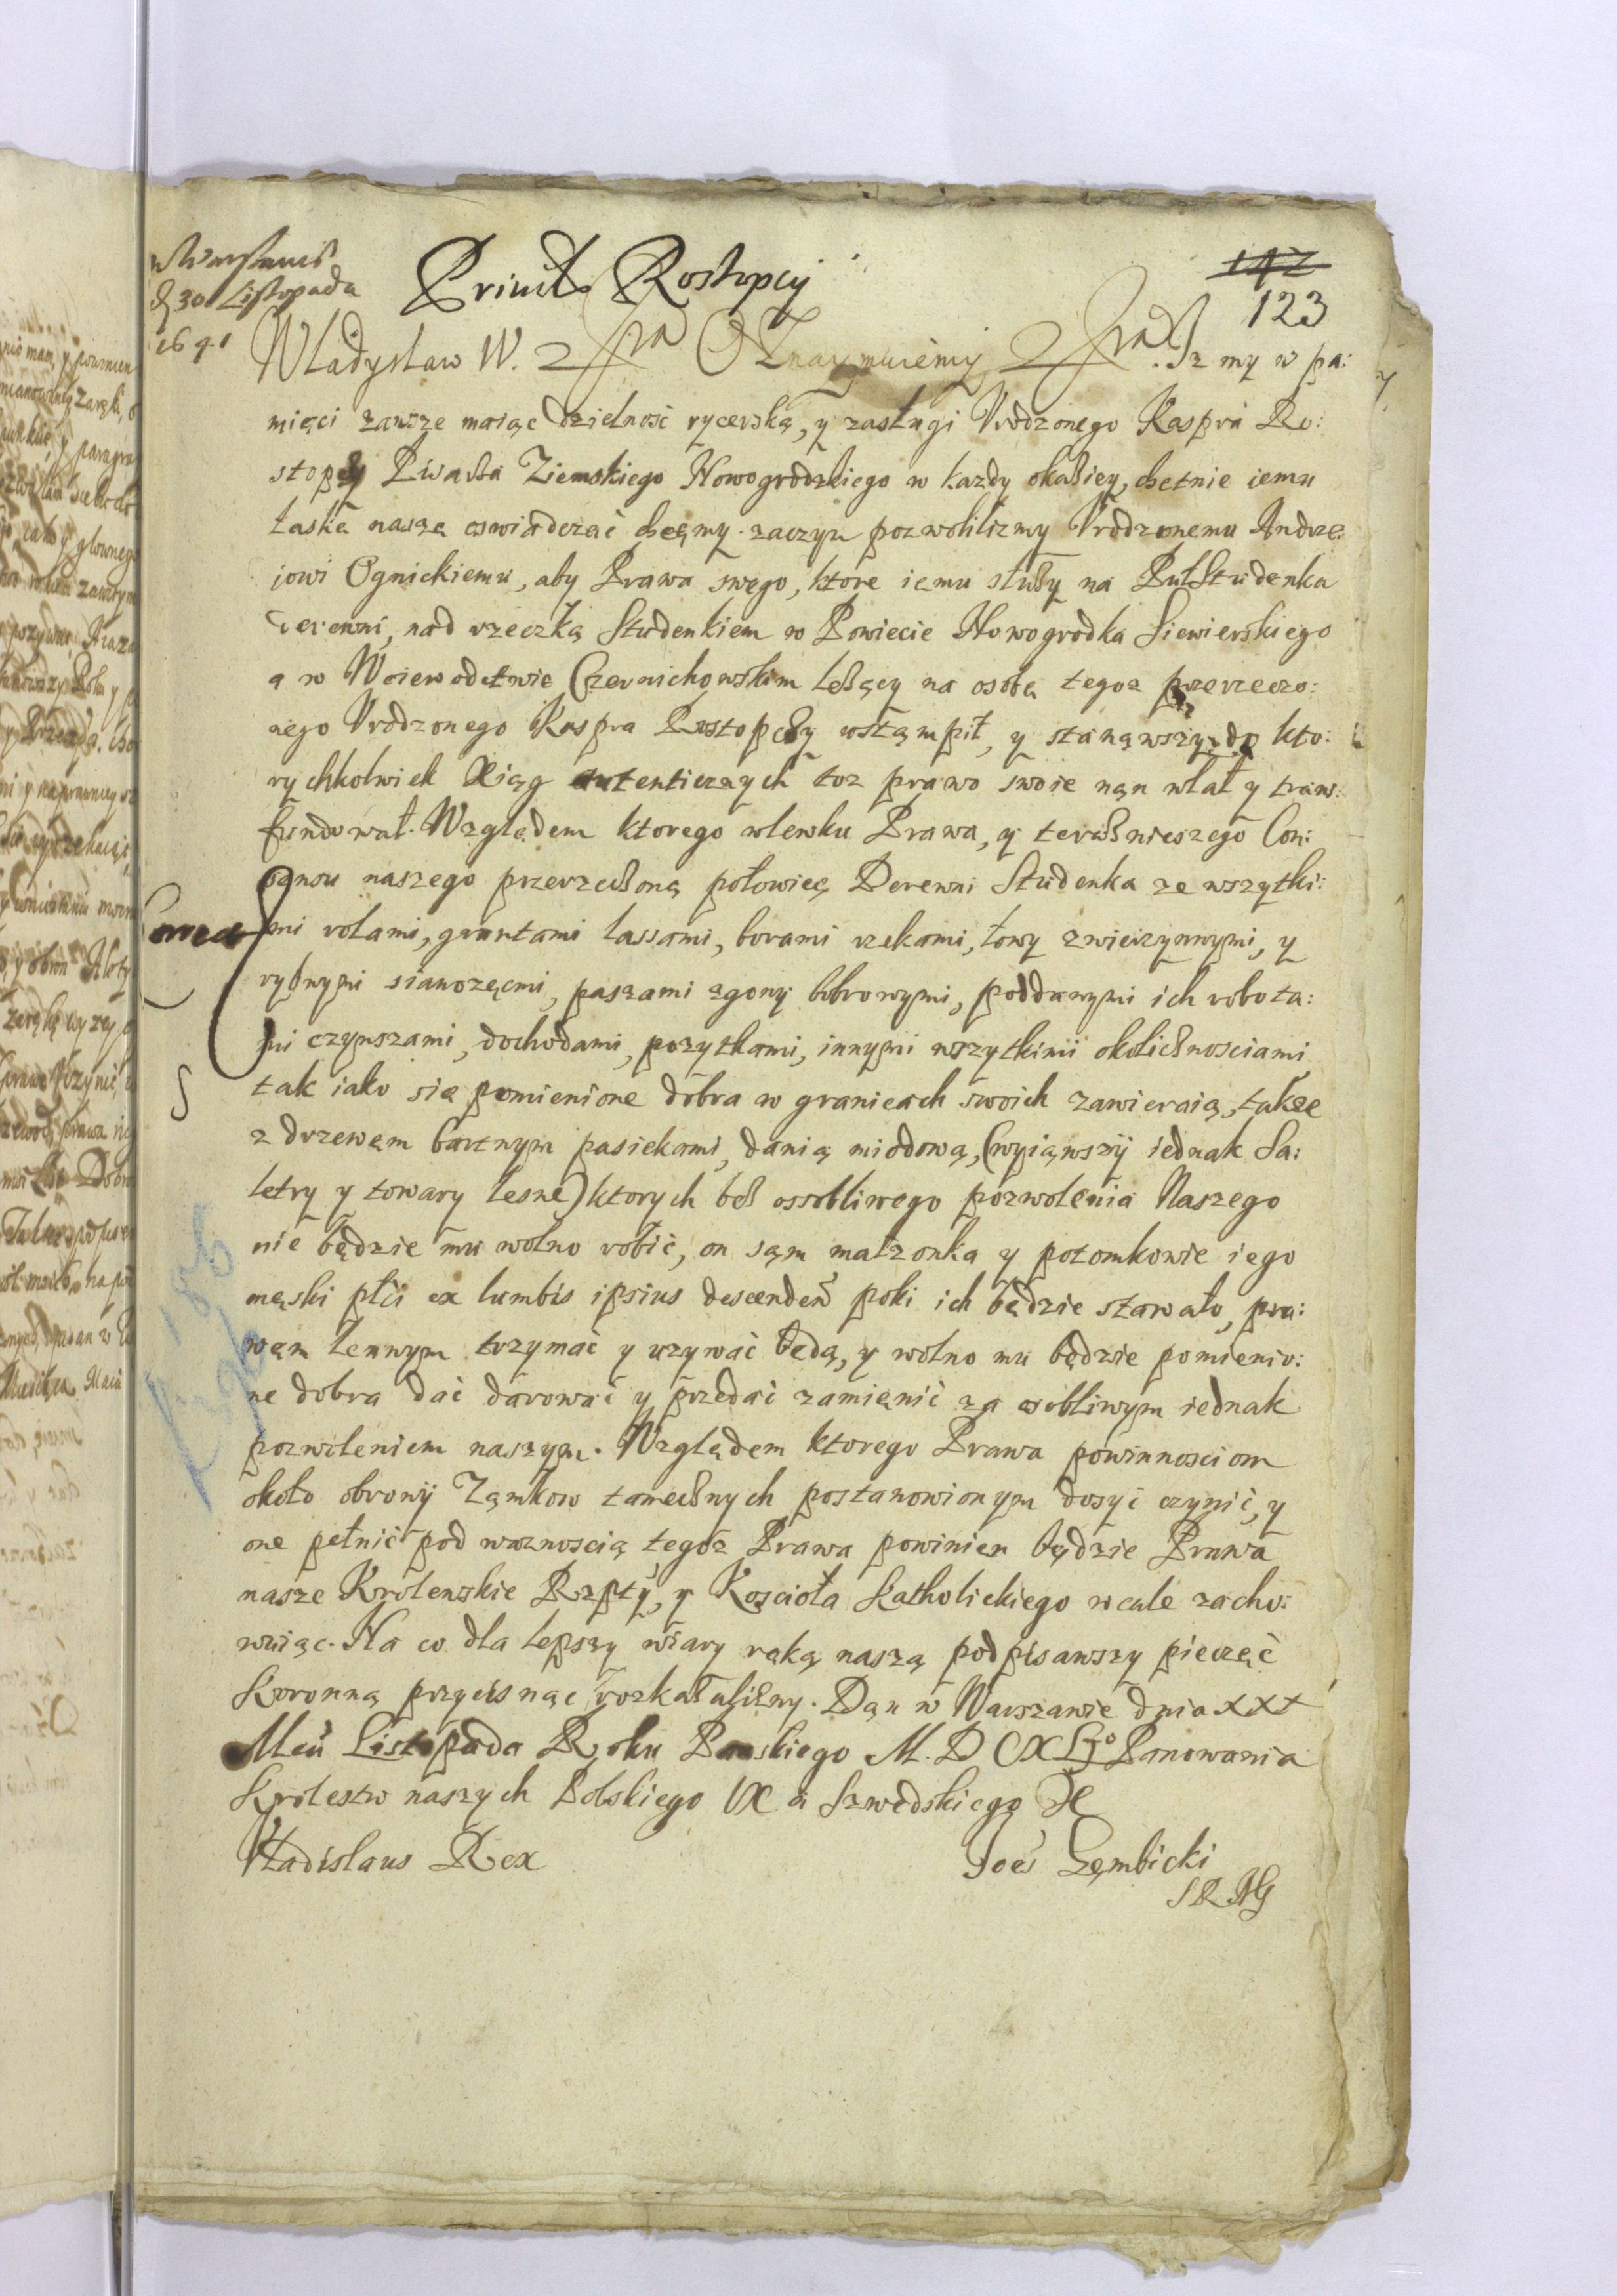 w Warszawie
D 30 Listopada
1641
Priwil. Rostopcÿ
142
123
Wladyslaw W. Oznaymuiemy .Iz my w pa:
mięci zawsze maiąc dzielnosć rycerską, y zasługi Vrodzonego Kaspra Ro:
stopczy Pisarza Ziemskiego Nowogrodzkiego w kazdy okaziey, chetnie iemu
łaskę naszą oswiadczać chcemy. zaczym pozwolilizmy Vrodzonemu Andrze:
iowi Ognickiemu, aby Prawa swego, ktore iemu słuzy na Puł Studenka
Derewni, nad rzeczką Studenkiem w Powiecie Nowogrodka Siewierskiego
a w Woiewodztwie Czernichowskim lezący na osobę tegoz przerzeczo:
nego Vrodzonego Kaspra Rostopczy wstąmpił, y stanąwszy do kto:
rychkolwiek Xiąg autenticznych toz prawo swoie nąn wlał y trans:
fundował. Względem ktorego wlewku Prawa, y teraznieszego Con:
sensu naszego przerzeczoną połowicę Derewni Studenka ze wszytki:
mi rolami, gruntami lassami, borami rzekami, łowy zwierzynnymi, y
rybnymi sianozęcmi, paszami zgony bobrowymi, poddanymi ich robota:
mi czynszami, dochodami, pozytkami, innymi wszytkimi okolicznosciami,
tak iako się pomienione dobra w granicach swoich zawieraią, takze
z drzewem bartnym pasiekami, danią miodową, (wyiąwszÿ iednak Sa:
letry y towary lesne) ktorych bez ossobliwego pozwolenia Naszego
nie będzie mu wolno robić, on sąm małzonka y potomkowie iego
męski płci ex lumbis ipsius descenden poki ich będzie stawało, pra:
wem lennym trzymać y uzywać będą, y wolno mu będzie pomienio:
ne dobra dać darować y przedać zamienić za osobliwym iednak
pozwoleniem naszym. Względem ktorego Prawa powinnosciom
około obronÿ Zamkow tamecznych postanowionym dosyć czynić, y
one pełnić pod waznoscią tegoz Prawa powinien będzie Prawa
nasze Krolewskie Rzpty, y Koscioła Katholickiego wcale zacho:
wuiąc. Na co dla lepszy wiary ręką naszą podpisawszy pieczęć
Koronną przycisnąc rozkazalismy. Dąn w Warszawie dnia XXX
Mcá Listopada Roku Panskiego M. D CXLIº Panowania
Krolestw naszych Polskiego IX a Szwedskiego X
Vladislaus Rex
Joēs Gembicki
S R M